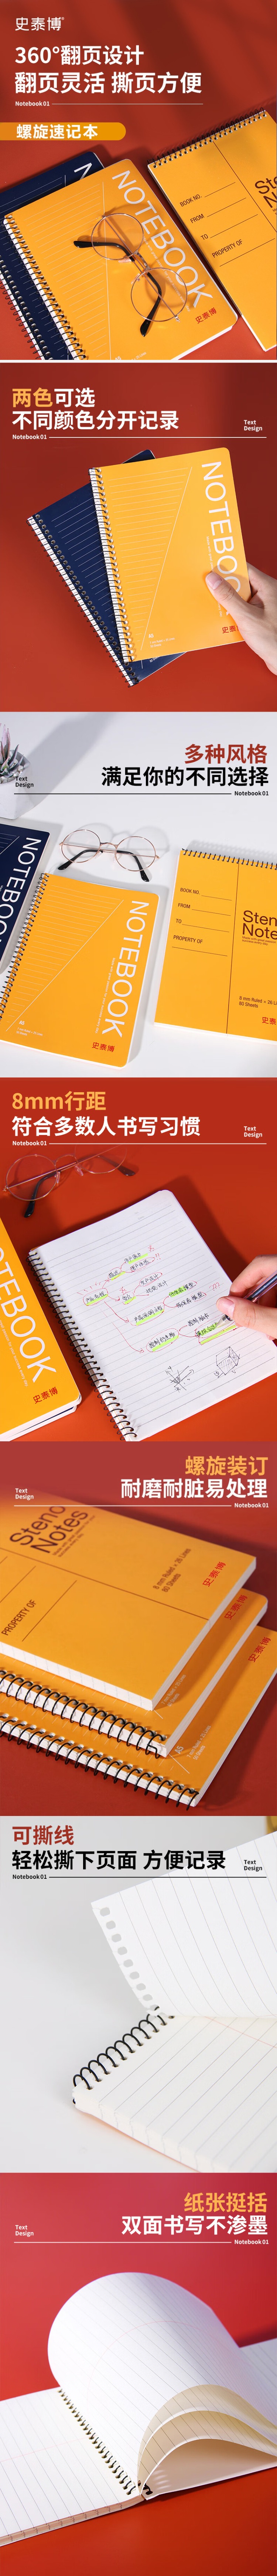 史泰博®
360°翻页设计
翻页灵活 撕页方便
Notebook 01
螺旋速记本
NOTEBOOK
史泰博
BOOK NO.
FROM
TO
PROPERTY OF
两色可选
不同颜色分开记录
Text
Design
Notebook 01
NOTEBOOK
史泰博
多种风格
满足你的不同选择
Text
Design
Notebook 01
NOTEBOOK
NOTEBOOK
A5
史泰博
BOOK NO.
FROM
TO
PROPERTY OF
Steno
Notes
8 mm Ruled
80 Sheets
8mm行距
符合多数人书写习惯
Text
Design
Notebook 01
史泰博
螺旋装订
耐磨耐脏易处理
Text
Design
Notebook 01
Steno
Notes
PROPERTY OF
8 mm Ruled • 26 Lines
80 Sheets
史泰博
史泰博
史泰博
A5
可撕线
轻松撕下页面 方便记录
Text
Design
Notebook 01
纸张挺括
双面书写不渗墨
Text
Design
Notebook 01